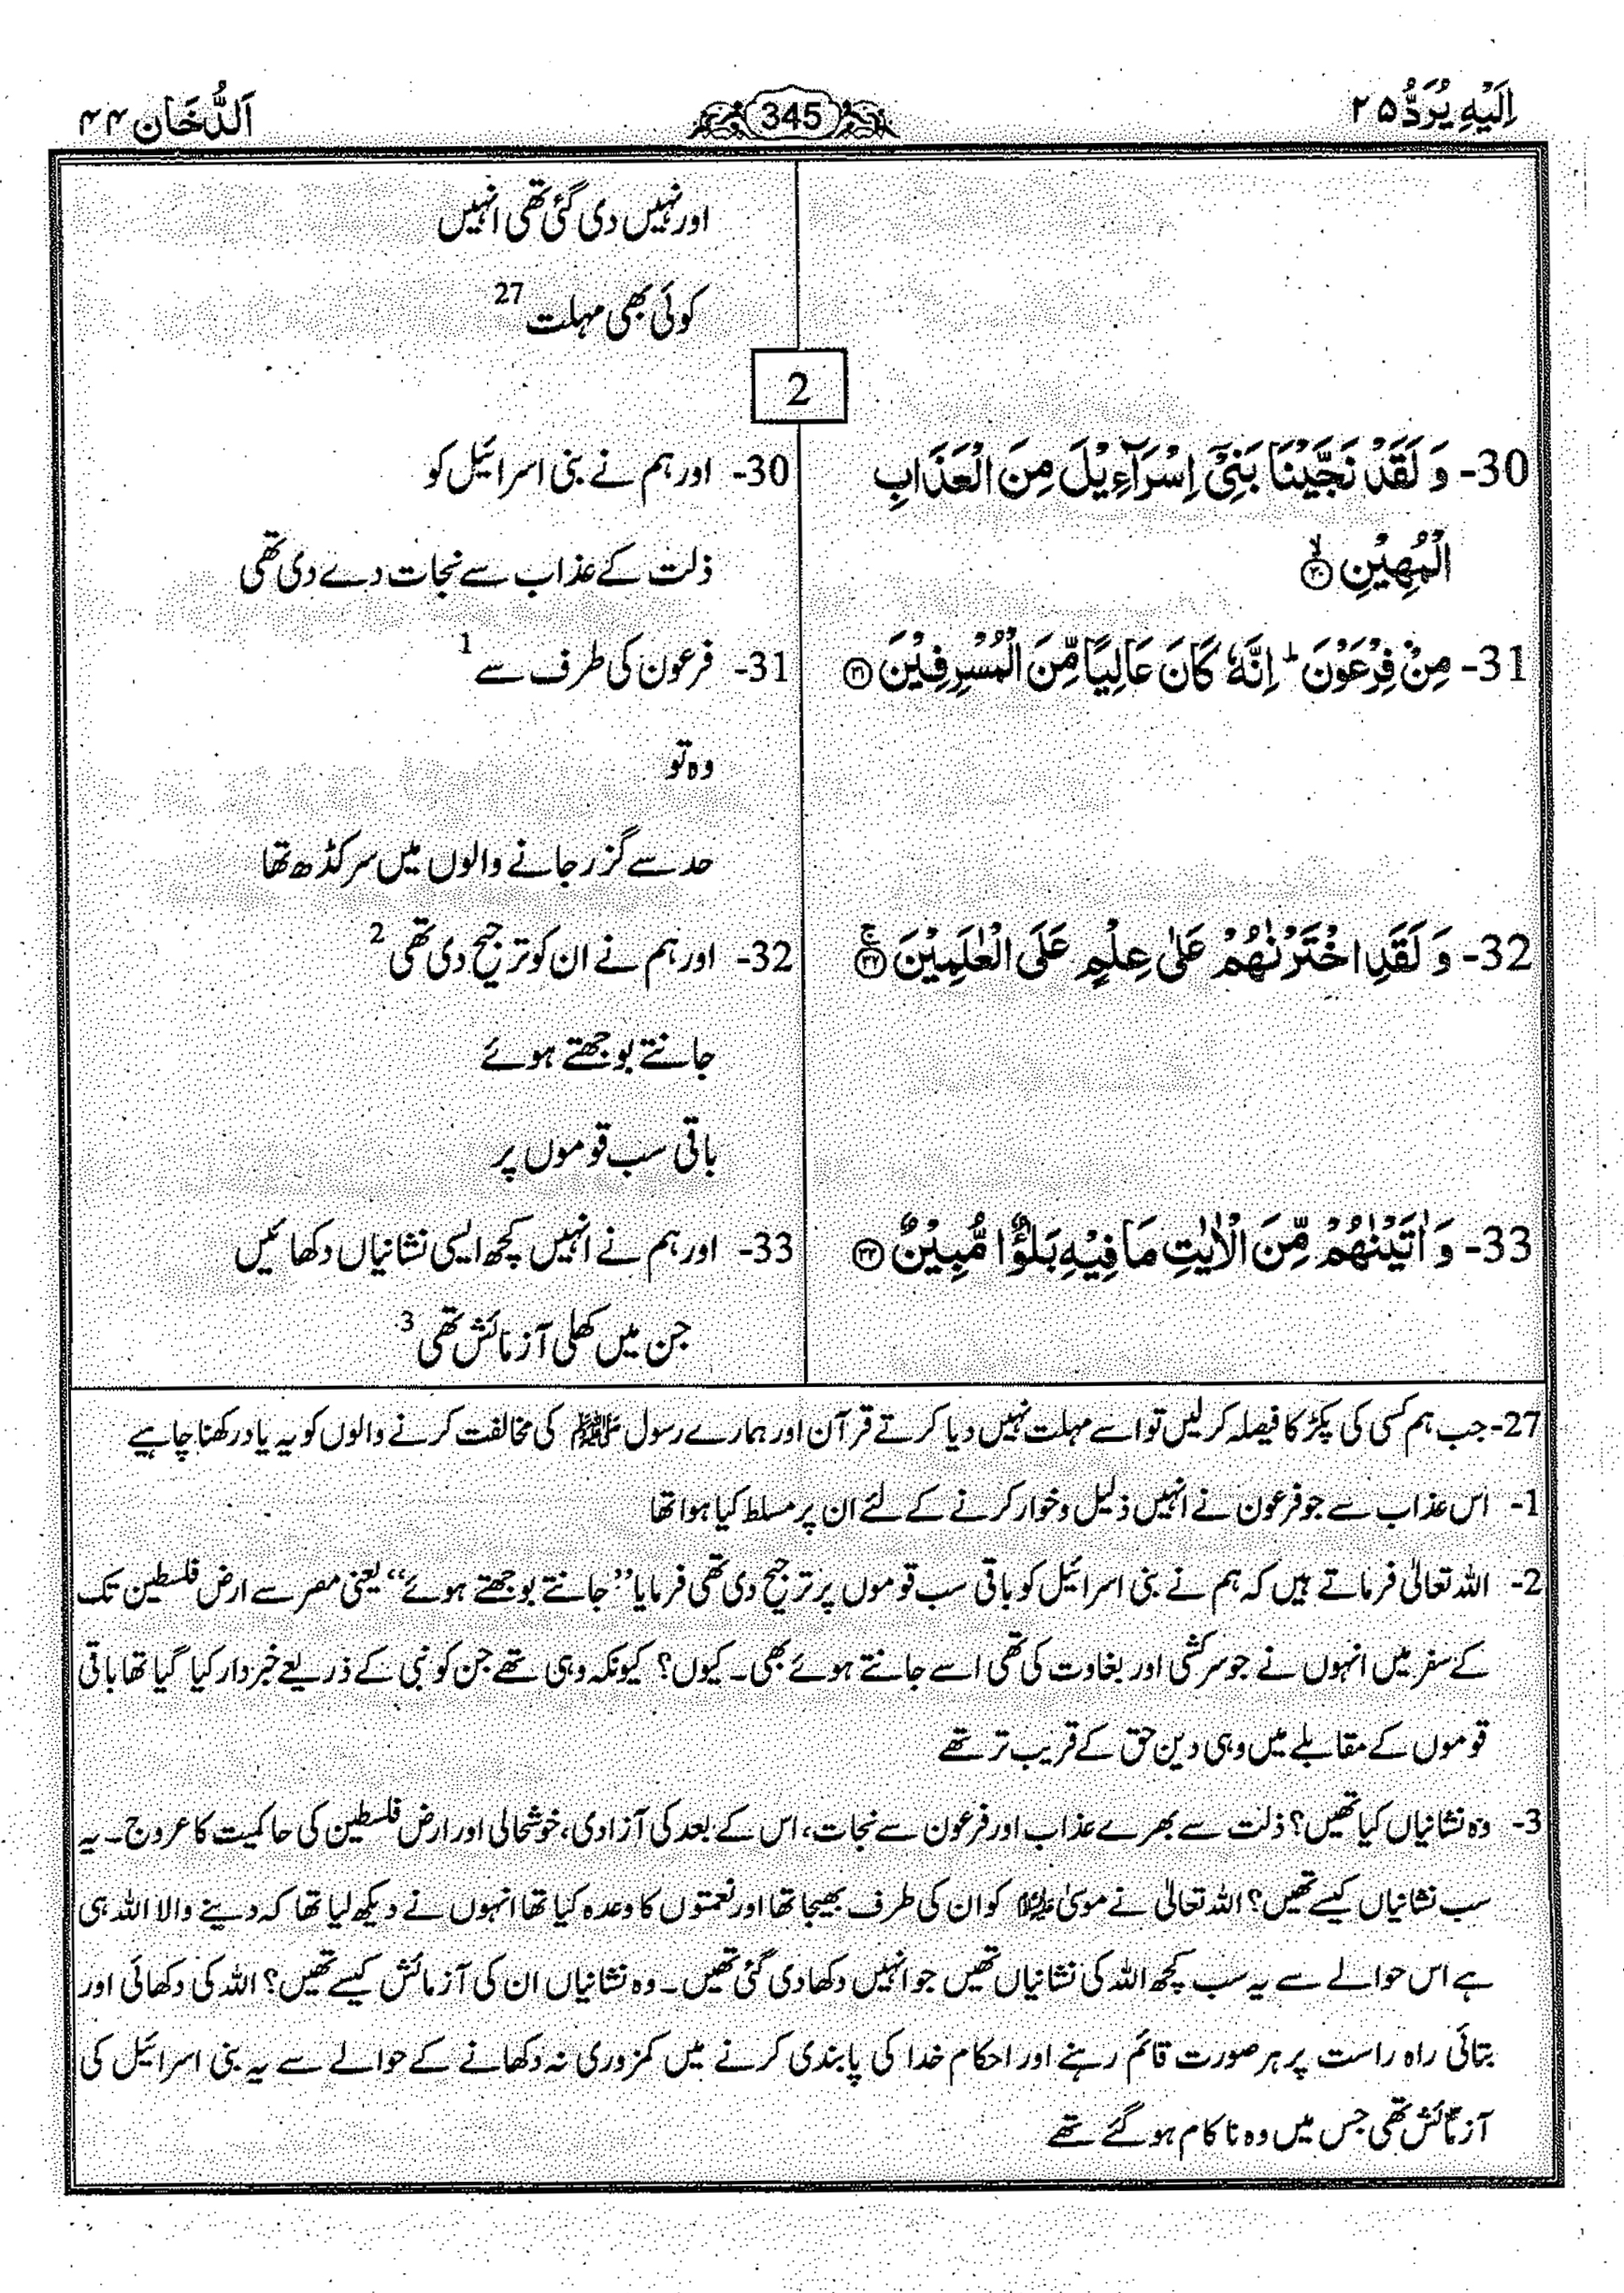 اِلَیْهِ یُرَدُّ ۲۵
345
اَلدُّخَان ۴۴
اور نہیں دی گئی تھی انہیں
کوئی بھی مہلت 27
2
30- وَ لَقَدْ نَجَّیْنَا بَنِیْۤ اِسْرَآءِیْلَ مِنَ الْعَذَابِ
الْمُهِیْنِۙ۝۳۰
31- مِنْ فِرْعَوْنَ ؕ اِنَّهٗ كَانَ عَالِیًا مِّنَ الْمُسْرِفِیْنَ۝۳۱
32- وَ لَقَدِ اخْتَرْنٰهُمْ عَلٰی عِلْمٍ عَلَی الْعٰلَمِیْنَۚ۝۳۲
33- وَ اٰتَیْنٰهُمْ مِّنَ الْاٰیٰتِ مَا فِیْهِ بَلٰٓؤٌا مُّبِیْنٌ۝۳۳
30- اور ہم نے بنی اسرائیل کو
ذلت کے عذاب سے نجات دے دی تھی
31- فرعون کی طرف سے 1
وہ تو
حد سے گزر جانے والوں میں سرکڈھ تھا
32- اور ہم نے ان کو ترجیح دی تھی 2
جانتے بوجھتے ہوئے
باقی سب قوموں پر
33- اور ہم نے انہیں کچھ ایسی نشانیاں دکھائیں
جن میں کھلی آزمائش تھی 3
27- جب ہم کسی کی پکڑ کا فیصلہ کر لیں تو اسے مہلت نہیں دیا کرتے قرآن اور ہمارے رسول ﷺ کی مخالفت کرنے والوں کو یہ یاد رکھنا چاہیے
1- اس عذاب سے جو فرعون نے انہیں ذلیل و خوار کرنے کے لئے ان پر مسلط کیا ہوا تھا
2- اللہ تعالیٰ فرماتے ہیں کہ ہم نے بنی اسرائیل کو باقی سب قوموں پر ترجیح دی تھی فرمایا ”جانتے بوجھتے ہوئے“ یعنی مصر سے ارض فلسطین تک
کے سفر میں انہوں نے جو سرکشی اور بغاوت کی تھی اسے جانتے ہوئے بھی۔ کیوں؟ کیونکہ وہی تھے جن کو نبی کے ذریعے خبردار کیا گیا تھا باقی
قوموں کے مقابلے میں وہی دین حق کے قریب تر تھے
3- وہ نشانیاں کیا تھیں؟ ذلت سے بھرے عذاب اور فرعون سے نجات، اس کے بعد کی آزادی، خوشحالی اور ارض فلسطین کی حاکمیت کا عروج۔ یہ
سب نشانیاں کیسے تھیں؟ اللہ تعالیٰ نے موسیٰ علیہ السلام کو ان کی طرف بھیجا تھا اور نعمتوں کا وعدہ کیا تھا انہوں نے دیکھ لیا تھا کہ دینے والا اللہ ہی
ہے اس حوالے سے یہ سب کچھ اللہ کی نشانیاں تھیں جو انہیں دکھا دی گئی تھیں۔ وہ نشانیاں ان کی آزمائش کیسے تھیں؟ اللہ کی دکھائی اور
بتائی راہ راست پر ہر صورت قائم رہنے اور احکام خدا کی پابندی کرنے میں کمزوری نہ دکھانے کے حوالے سے یہ بنی اسرائیل کی
آزمائش تھی جس میں وہ ناکام ہو گئے تھے